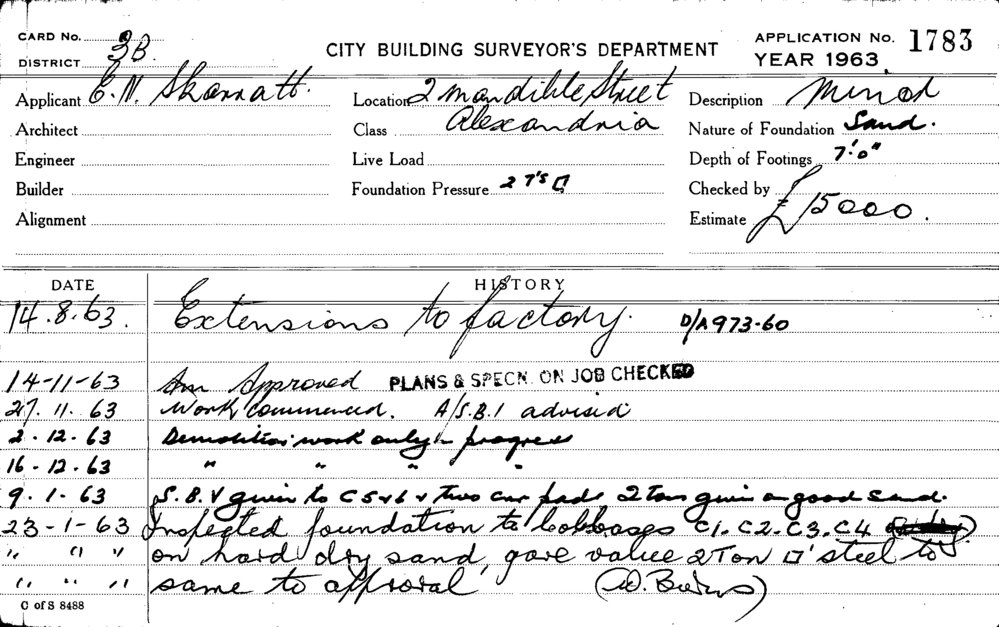 CARD No.
DISTRICT 3B.
CITY BUILDING SURVEYOR'S DEPARTMENT
APPLICATION No. 1783
YEAR 1963
Applicant E. N. Skarratt.
Location 2 Mandible Street
Description Minor
Architect
Class Alexandria
Nature of Foundation Sand.
Engineer
Live Load
Depth of Footings 7'.0"
Builder
Foundation Pressure 2 T's □
Checked by
Alignment
Estimate £15000.
DATE
HISTORY
14.8.63. Extensions to factory. D/A 973-60
14-11-63 Approved PLANS & SPECN. ON JOB CHECKED
27.11.63 Work commenced. A/S.B.1 advised
2.12.63 Demolition work only in progress
16-12.63 " " " "
9.1-63 given to C5 & 6 & two car pads 2 Tons given on good sand.
23-1-63 Inspected foundation to bases C1. C2. C3. C4
" " " on hard dry sand, gave value 2 Ton □' steel to
" " " same to approval
C of S 8488